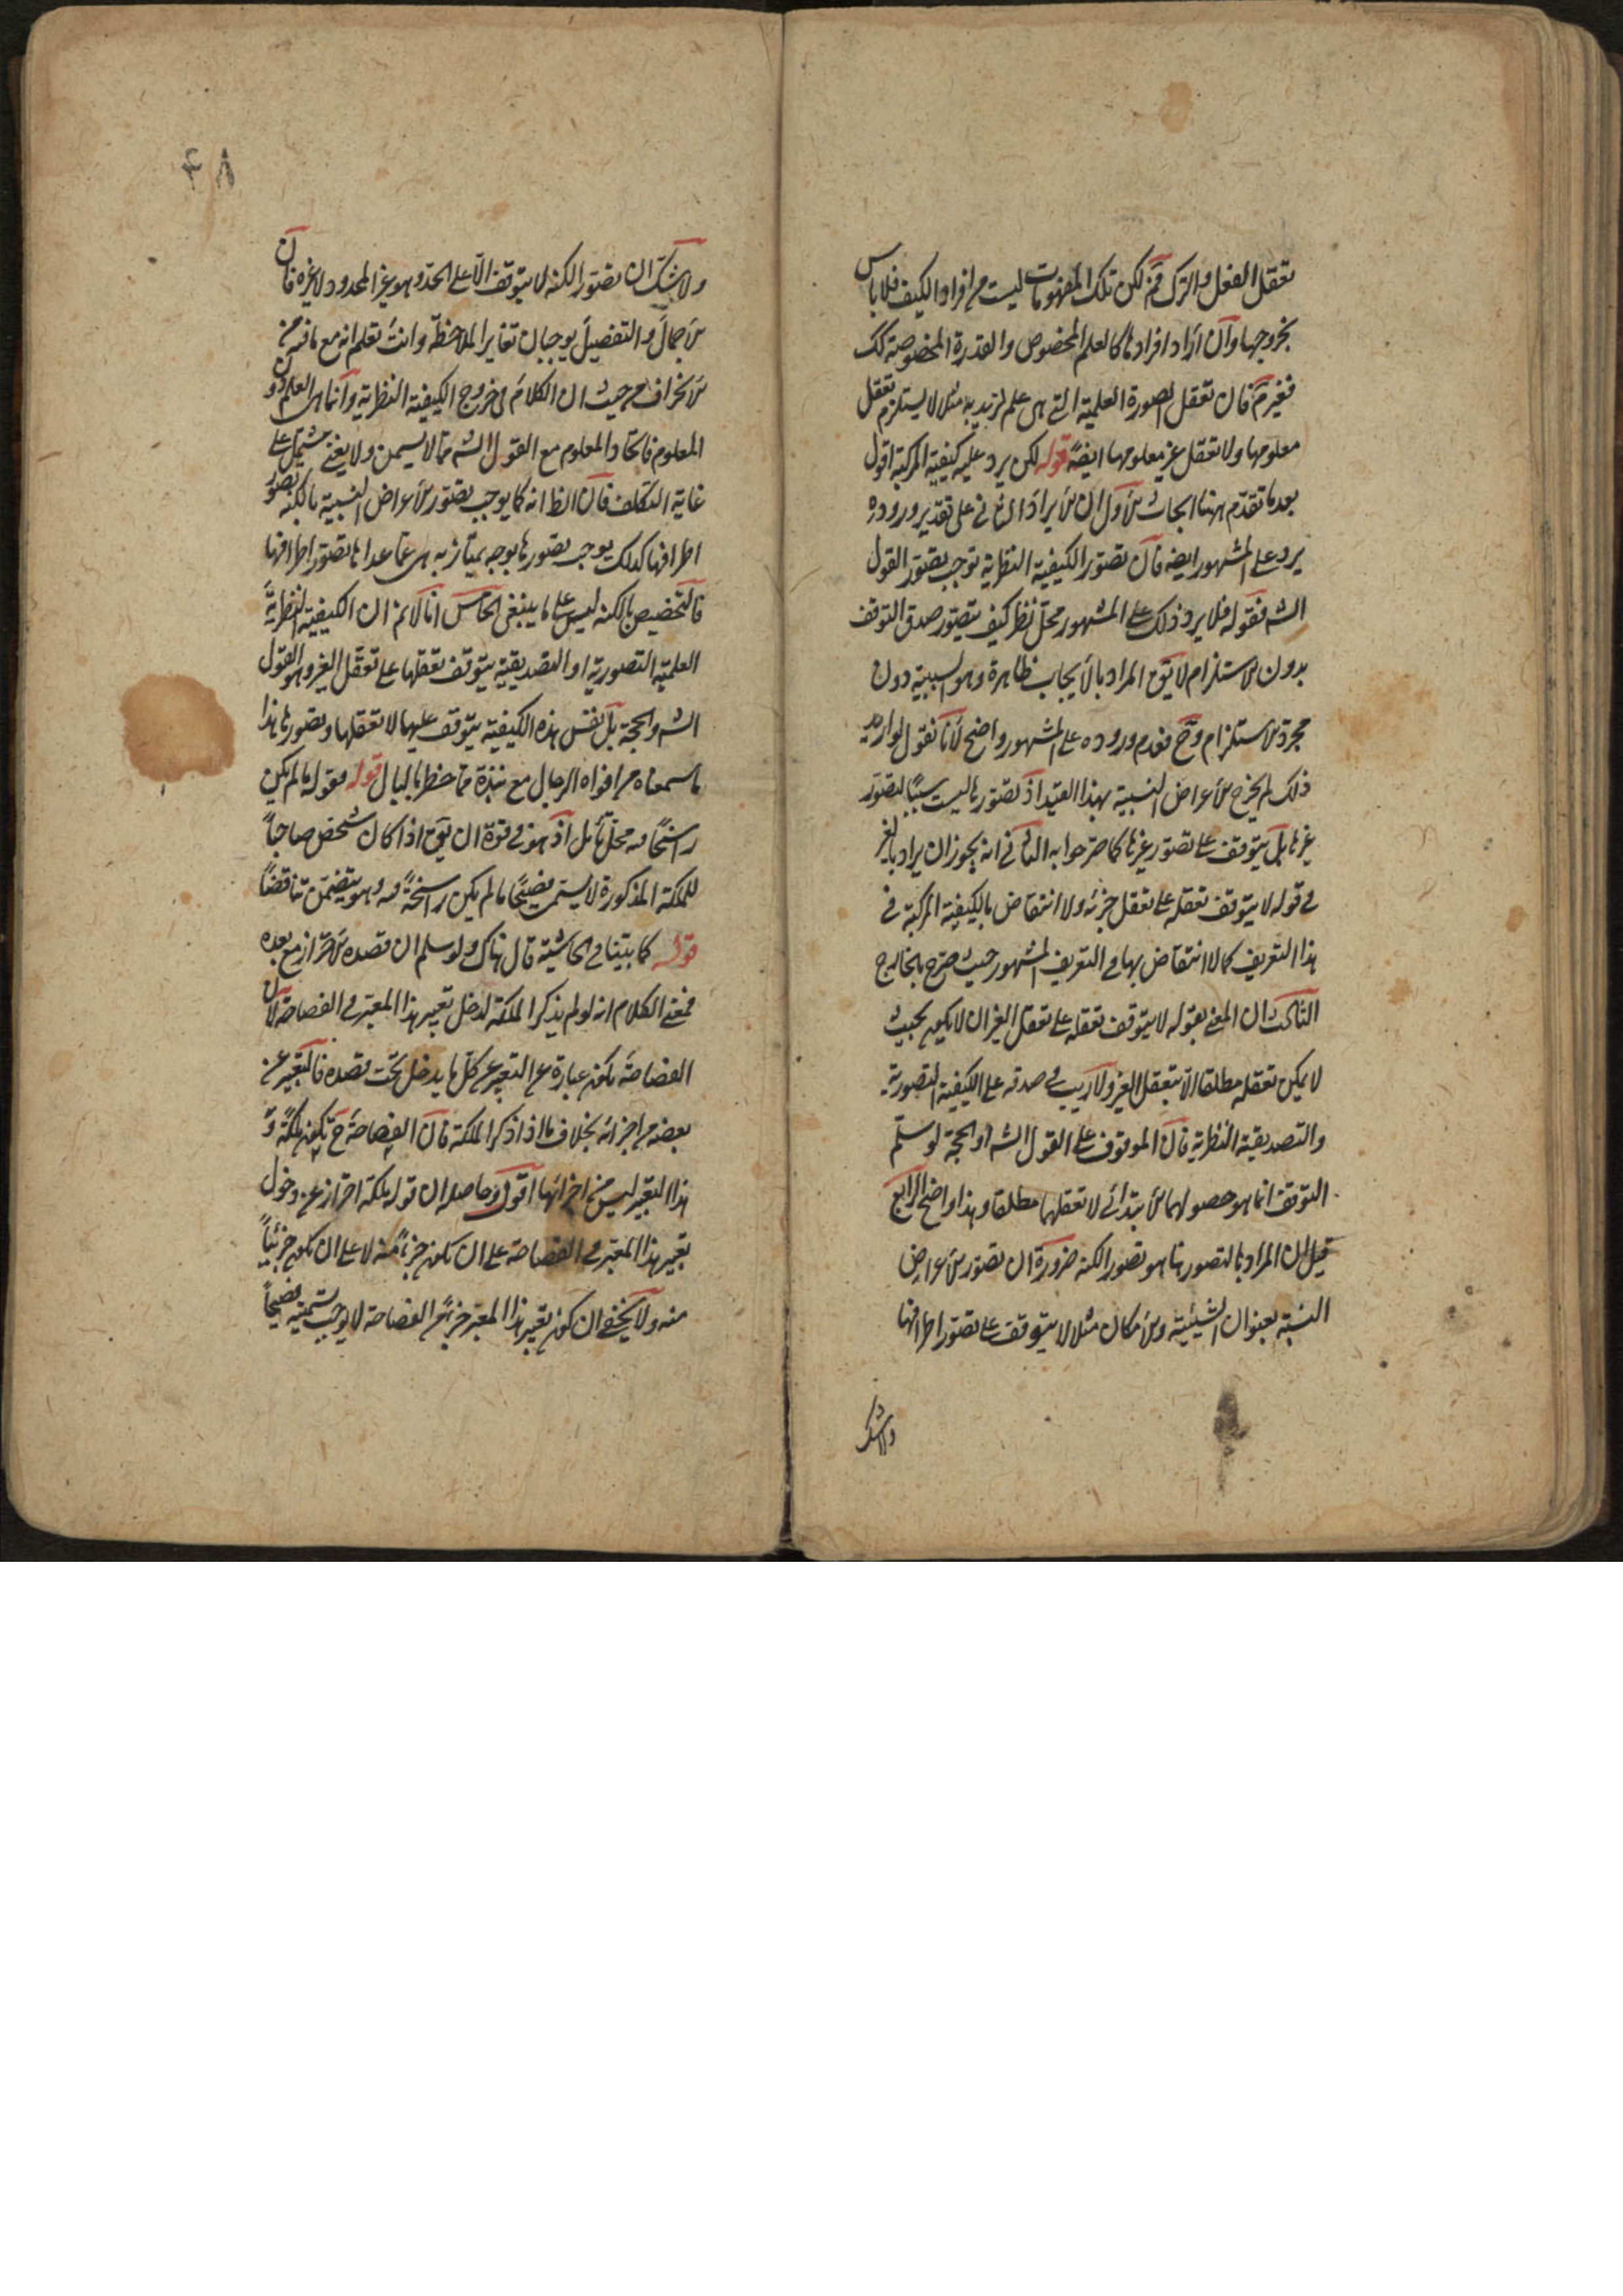 تعقل الفعل والترك فم لكن تلك المفهومات ليست من افراد الكيف فلا باس
بخروجها وان اراد افرادها كالعلم المخصوص والقدرة المخصوصة كك
فغير م فان تعقل الصورة العلمية التي هي علم لزيد به مثلا لا يستلزم تعقل
معلومها ولا تعقل غير معلومها ايضا قوله لكن يرد عليه كيفية المركبة اقول
بعد ما تقدم ههنا ابحاث الاول ان الايراد الثاني على تقدير وروده
يرد على المشهور ايضا فان تصور الكيفية النظرية توجب تصور القول
الش فقوله فلا يرد ذلك على المشهور محل نظر كيف يتصور صدق التوقف
بدون الاستلزام لا يق المراد بالايجاب ظاهره وهو السببية دون
مجرد الاستلزام وح فعدم وروده على المشهور واضح لانا نقول لو اريد
ذلك لم يخرج الاعراض النسبية بهذا القيد اذ تصورها ليست سببا لتصور
غيرها بل يتوقف على تصور غيرها كما صرحوا به الثاني انه يجوز ان يراد بالغير
في قوله لا يتوقف تعقله على تعقل جزئه ولا انتقاض بالكيفية المركبة في
هذا التعريف كما لا انتقاض بها في التعريف المشهور حيث صرح بالخارج
الثالث ان المعنى بقوله لا يتوقف تعقله على تعقل الغير ان لا يكون بحيث
لا يمكن تعقله مطلقا الا بتعقل الغير ولا ريب في صدقه على الكيفية التصورية
والتصديقية النظرية فان الموقوف على القول الش او الحجة لو سلم
التوقف انما هو حصولهما الابتدائي لا تعقلهما مطلقا وهذا واضح الرابع
قيل ان المراد بالتصور هنا هو تصور الكنه ضرورة ان تصور الاعراض
النسبة بعنوان الشيئية والامكان مثلا لا يتوقف على تصور اطرافها
ولا شك
٤٨
ولا شك ان تصور الكنه لا يتوقف الا على الحد وهو غير المحدود لا غيره فان
الاجمال والتفصيل يوجبان تغاير الملاحظة وانت تعلم انه مع ما فيه من
الانحراف من حيث ان الكلام في خروج الكيفية النظرية وانما هي العلم دون
المعلوم فاتحاد المعلوم مع القول الش مما لا يسمن ولا يغني مشتمل على
غاية التكلف فان الظ انه كما يوجب تصور الاعراض النسبية بالكنه تصور
اطرافها كذلك يوجب تصورها بوجه يمتاز به هي عما عداها تصور اطرافها
فالتخصيص بالكنه ليس على ما ينبغي الخامس انا لا نم ان الكيفية النظرية
العلمية التصورية او التصديقية يتوقف تعقلها على تعقل الغير وهو القول
الش والحجة بل نفس هذه الكيفية يتوقف عليهما لا تعقلها وتصورها هذا
ما سمعناه من افواه الرجال مع نبذة مما خطر بالبال قوله فقوله ما لم يكن
راسخا فيه محل تامل اذ هو في قوة ان يق اذا كان شخص صاحبا
للملكة المذكورة لا يسمى فصيحا ما لم يكن راسخة فيه وهو يتضمن تناقضا
قوله كما بينا في الحاشية قال هناك ولو سلم ان قصده الاحتراز مع بعده
فمعنى الكلام انه لو لم يذكر الملكة لدخل تعبير هذا المعبر في الفصاحة لان
الفصاحة يكون عبارة عن التعبير عن كل ما يدخل تحت قصده فالتعبير عن
بعضه من اجزائه بخلاف ما اذا ذكر الملكة فان الفصاحة ح يكون ملكة و
هذا التعبير ليس من اجزائها اقول وحاصله ان قوله ملكة احتراز عن دخول
تعبير هذا المعبر في الفصاحة على ان يكون جزءا منه لا على ان يكون جزئيا
منه ولا يخفى ان كون تعبير هذا المعبر جزءا من الفصاحة لا يوجب تسميته فصيحا